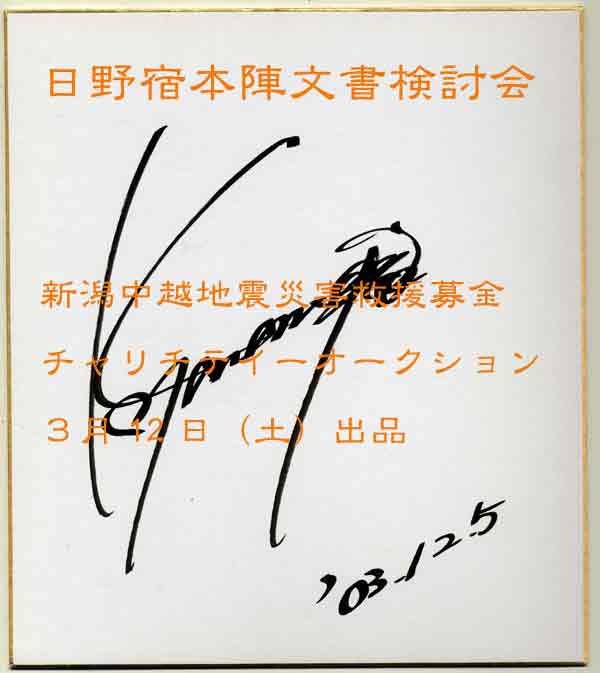 日野宿本陣文書検討会
新潟中越地震災害救援募金
チャリチテイーオークション
3月12日(土)出品
'03.12.5